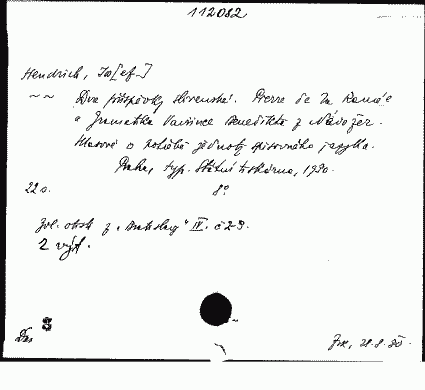 112082
Hendrich, Jo[sef]
~~ Dva příspěvky slovenské. Pierre de la Ramée
a Gramatika Vavřince Benedikta z Nudožer.
Hlasové o potřebě jednoty spisovného jazyka.
Praha, typ. Státní tiskárna, 1930.
22 s. 8°
Zvl. otisk z „Bratislavy“ IV. č 2-3.
2 výt.
Dar 8
28.8.